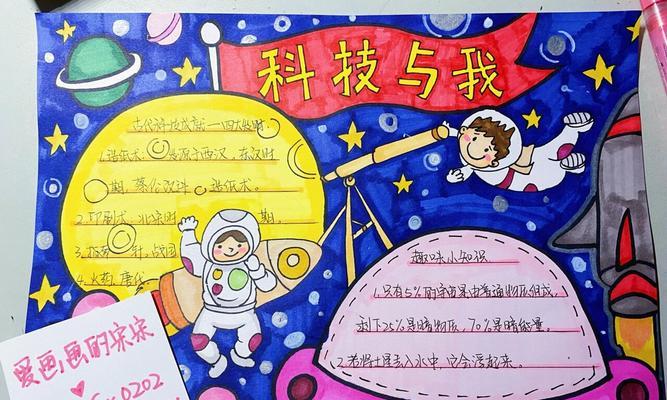 科技与我
古代科技成就——四大发明
1.造纸术:发源于西汉,东汉时
期,蔡伦改进造纸术。
2.印刷术:北宋时期。
3.指南针:战国
4.火药:唐代
趣味小知识
1.只有5%的宇宙是由普通物质组成,
剩下25%是暗物质,70%是暗能量。
2.若将土星丢入水中,它会浮起来。
爱画画的宋宋
0202